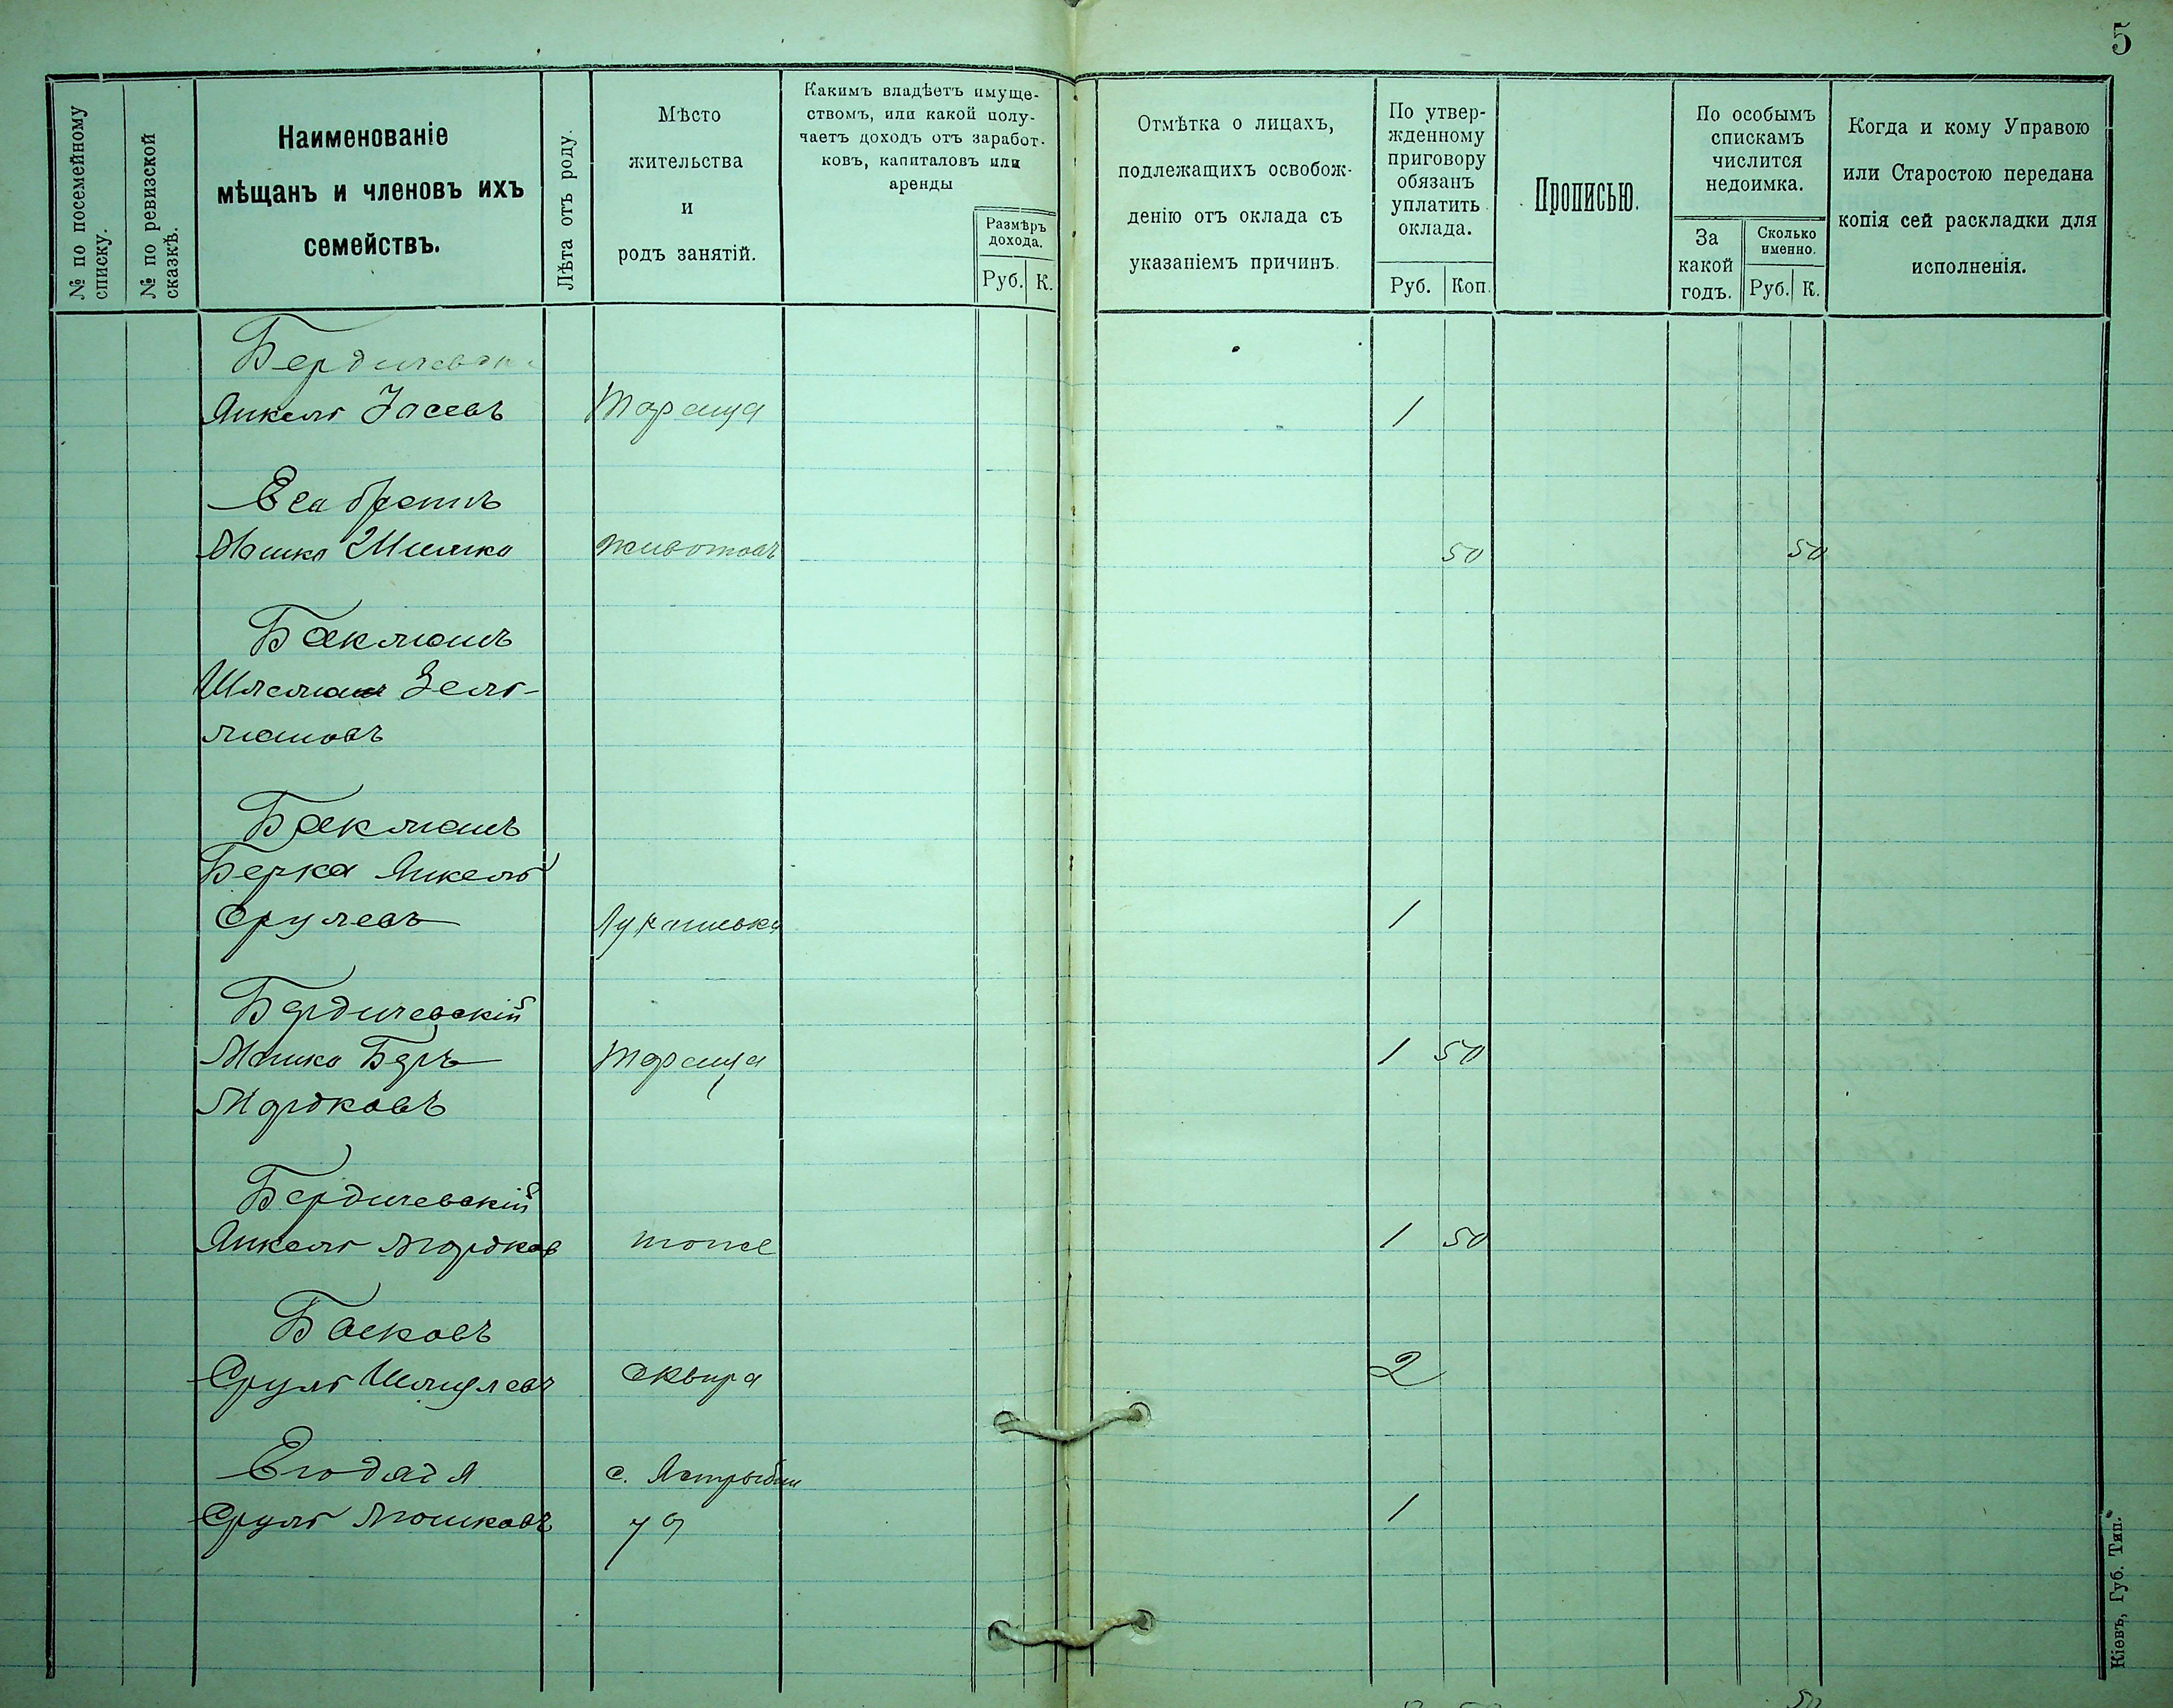 5
№ по посемейному списку.
№ по ревизской сказкѣ.
Наименованіе
мѣщанъ и членовъ ихъ
семействъ.
Лѣта отъ роду.
Мѣсто
жительства
и
родъ занятій.
Какимъ владѣетъ имуще-
ствомъ, или какой полу-
чаетъ доходъ отъ заработ-
ковъ, капиталовъ или
аренды
Размѣръ
дохода.
Руб. К.
Отмѣтка о лицахъ,
подлежащихъ освобож-
денію отъ оклада съ
указаніемъ причинъ.
По утвер-
жденному
приговору
обязанъ
уплатить
оклада.
Руб. Коп.
Прописью.
По особымъ
спискамъ
числится
недоимка.
За
какой
годъ.
Сколько
именно.
Руб. К.
Когда и кому Управою
или Старостою передана
копія сей раскладки для
исполненія.
Янкель Іосевъ Тараща 1
Его братъ
Мошко Шимко Животовъ 50 50
Бакманъ
Зель-
мановъ
Бакманъ
Берка Янкель
Срулевъ Лукашевка 1
Бердичевскій
Мошко Беръ Тараща 1 50
Мордковъ
Бердичевскій
Янкель Мордков тоже 1 50
Басковъ
Сруль Шмулевъ Сквира 2
с.
Сруль Мошковъ 1
Кіевъ, Губ. Тип.
50